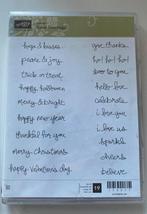 hugs & kisses
peace & joy
trick or treat
happy halloween
merry & bright
happy new year
thankful for you
merry christmas
happy valentine's day
give thanks
ho! ho! ho!
boo to you
hello love
celebrate
i love you
i love us
sparkle
cheers
believe
19